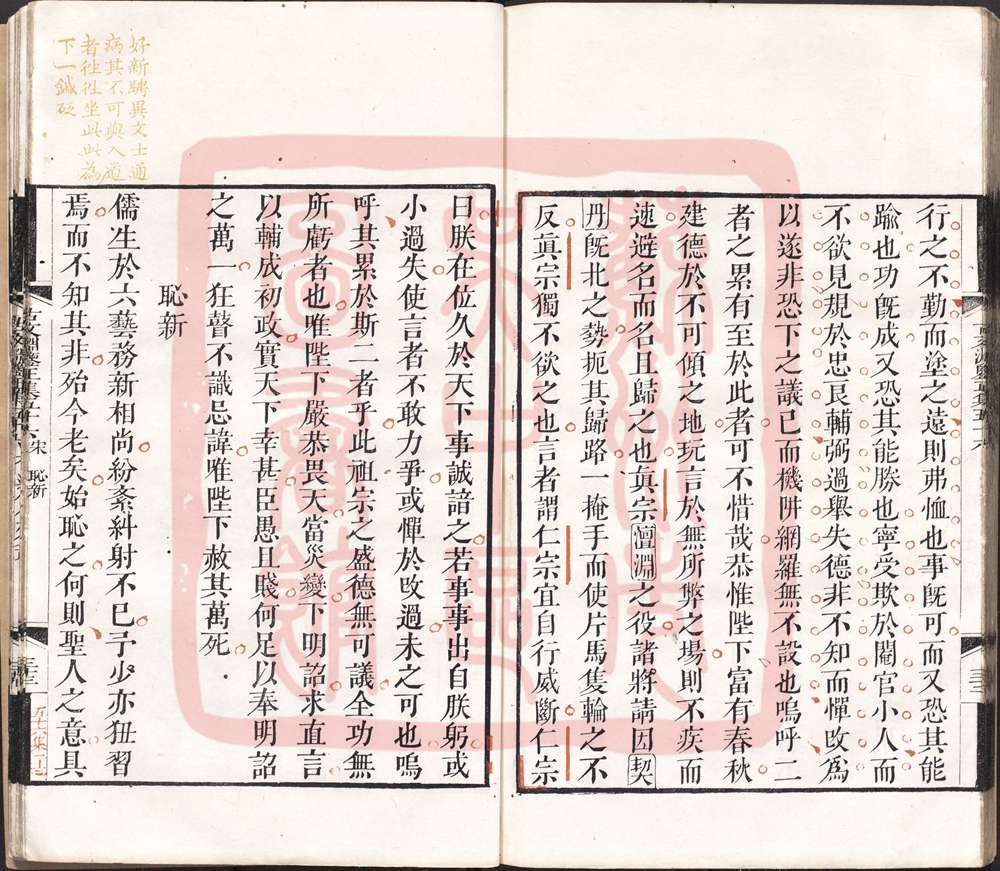 行之不勤而塗之遠則弗恤也事旣可而又恐其能
踰也功旣成又恐其能勝也寧受欺於閹官小人而
不欲見規於忠良輔弼過舉失德非不知而憚攺爲
以遂非恐下之議已而機阱網羅無不設也嗚呼二
者之累有至於此者可不惜哉恭惟陛下富有春秋
建德於不可傾之地玩言於無所弊之場則不疾而
速避名而名且歸之也眞宗澶淵之役諸將請因契
丹旣北之勢扼其歸路一掩手而使片馬隻輪之不
反眞宗獨不欲之也言者謂仁宗宜自行威斷仁宗
曰朕在位久於天下事誠諳之若事事出自朕躬或
小過失使言者不敢力爭或憚於攺過未之可也嗚
呼其累於斯二者乎此祖宗之盛德無可議全功無
所虧者也唯陛下嚴恭畏天當災變下明詔求直言
以輔成初政實天下幸甚臣愚且賤何足以奉明詔
之萬一狂瞽不識忌諱唯陛下赦其萬死
恥新
儒生於六藝務新相尚紛紊糾射不已予少亦狃習
焉而不知其非殆今老矣始恥之何則聖人之意具
好新騁異文士通
病其不可與入道
者往往坐此此爲
下一鍼砭
宋 恥新